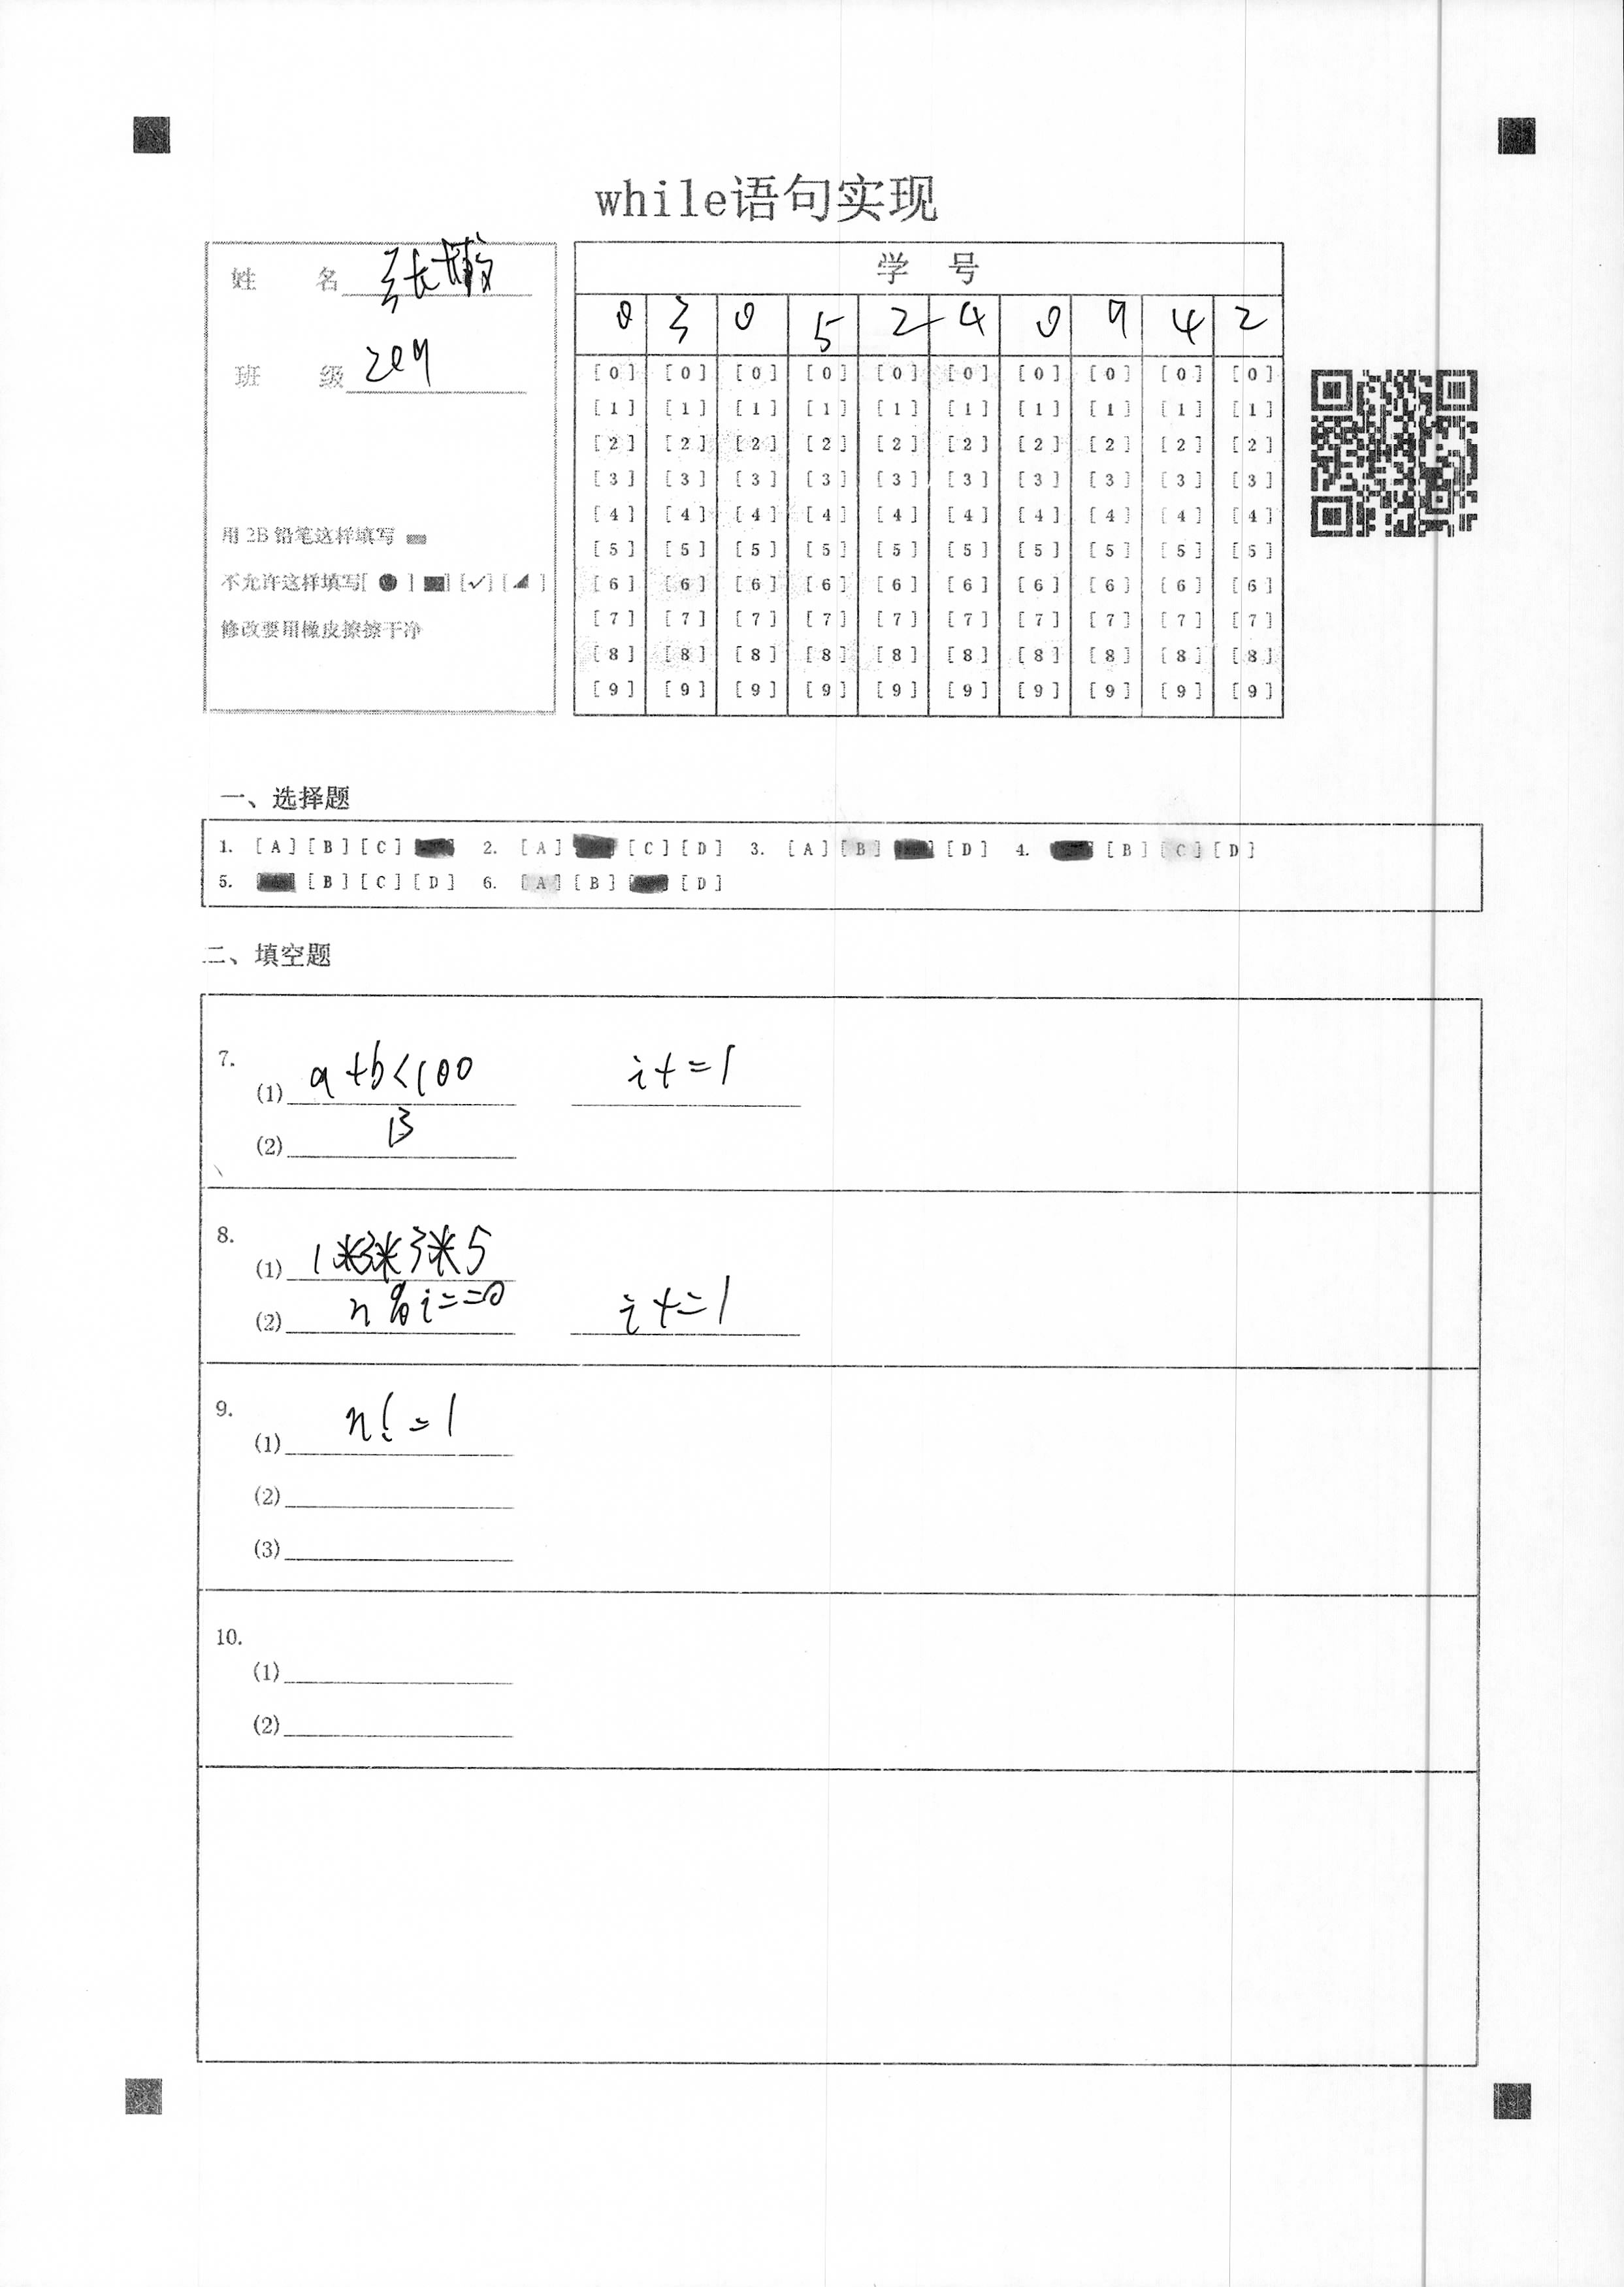 while语句实现
姓 名 张
班 级 209
用 2B 铅笔这样填写
不允许这样填写[ ● ] [■] [✓] [◢ ]
修改要用橡皮擦擦干净
学 号
0 3 0 5 2 4 0 9 4 2
[0] [0] [0] [0] [0] [0] [0] [0] [0] [0]
[1] [1] [1] [1] [1] [1] [1] [1] [1] [1]
[2] [2] [2] [2] [2] [2] [2] [2] [2] [2]
[3] [3] [3] [3] [3] [3] [3] [3] [3] [3]
[4] [4] [4] [4] [4] [4] [4] [4] [4] [4]
[5] [5] [5] [5] [5] [5] [5] [5] [5] [5]
[6] [6] [6] [6] [6] [6] [6] [6] [6] [6]
[7] [7] [7] [7] [7] [7] [7] [7] [7] [7]
[8] [8] [8] [8] [8] [8] [8] [8] [8] [8]
[9] [9] [9] [9] [9] [9] [9] [9] [9] [9]
一、选择题
1. [A] [B] [C] 2. [A] [C] [D] 3. [A] [B] [D] 4. [B] [C] [D]
5. [B] [C] [D] 6. [A] [B] [D]
二、填空题
7.
(1) a+b<100 i+=1
(2) 13
8.
(1) 1*3*3*5
(2) n%i==0 i+=1
9.
(1) n!=1
(2)
(3)
10.
(1)
(2)